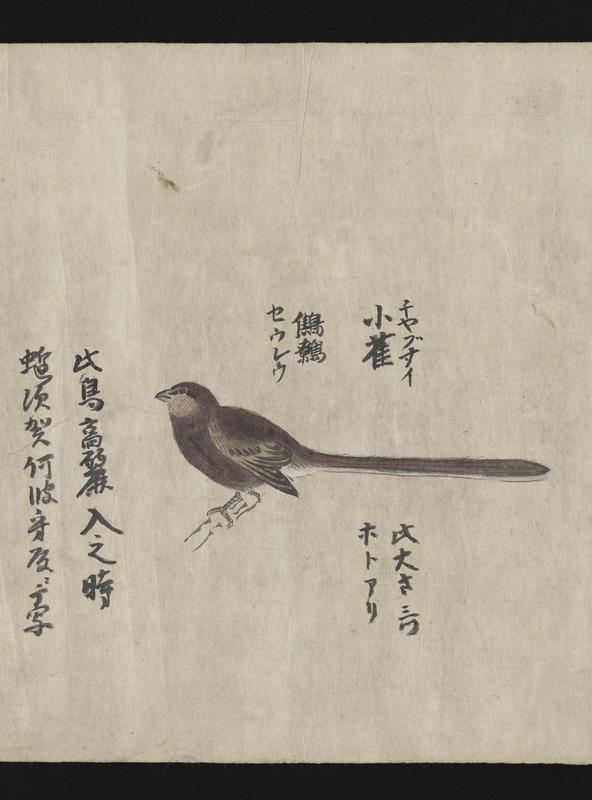 チヤブスイ
小雀
鷦鷯
セウレウ
此大さ三つ
ホトアリ
此鳥高麗入之時
蜂須賀阿波守殿ニテ写